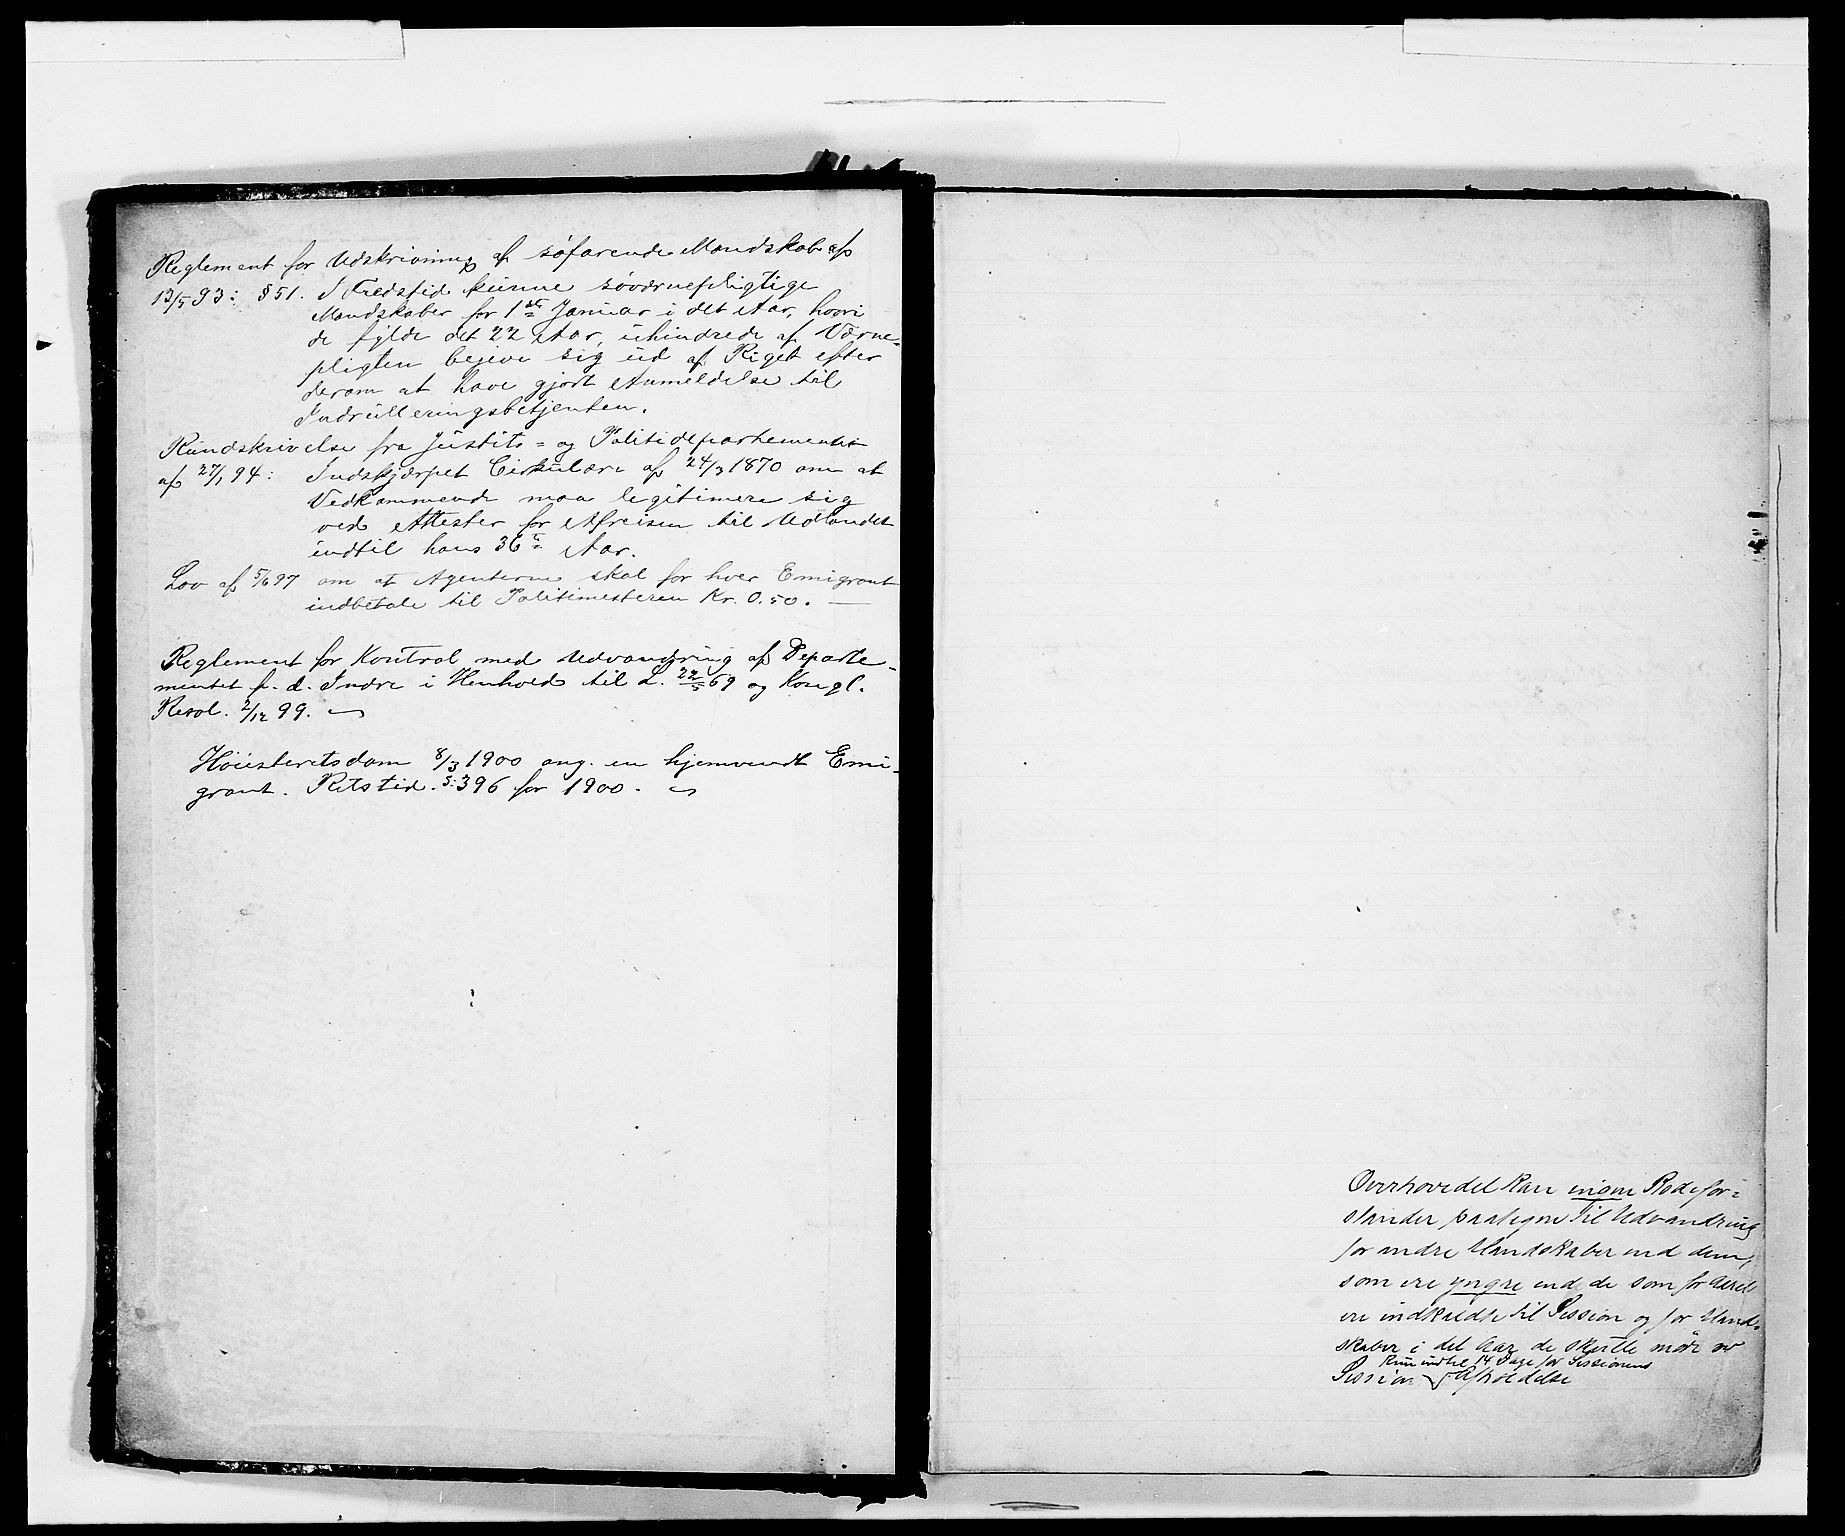 Reglement for Udskrivning af søfarende Mandskab af
13/5 93: §51. I Fredstid kunne søværnepligtige
Mandskaber før 1ste Januar i det Aar, hvori
de fylde det 22 Aar, uhindrede af Værne-
pligten begive sig ud af Riget efter
derom at have gjort Anmeldelse til
Indrulleringsbetjenten.
Rundskrivelse fra Justits- og Politidepartementet
af 27/1 94: Indskjærpet Cirkulære af 24/3 1870 om at
Vedkommende maa legitimere sig
ved Attester før Afreisen til Udlandet
indtil hans 36te Aar.
Lov af 5/6 97 om at Agenterne skal for hver Emigrant
indbetale til Politimesteren Kr. 0.50. —
Reglement for Kontrol med Udvandring af Departe-
mentet f. d. Indre i Henhold til L. 22/5 69 og Kongl.
Resol. 2/12 99.
Høiesteretsdom 8/3 1900 ang. en hjemvendt Emi-
grant. Retstid. S. 396 for 1900.
Overhovedet kan ingen Rodefor=
stander paategne til Udvandring
for andre Mandskaber end dem,
som ere yngre end de som for Aaret
ere indkaldte til Session og for Mand-
skaber i det Aar de skulle møde ved
Kun indtil 14 Dage før Sessionens
Session Afholdelse